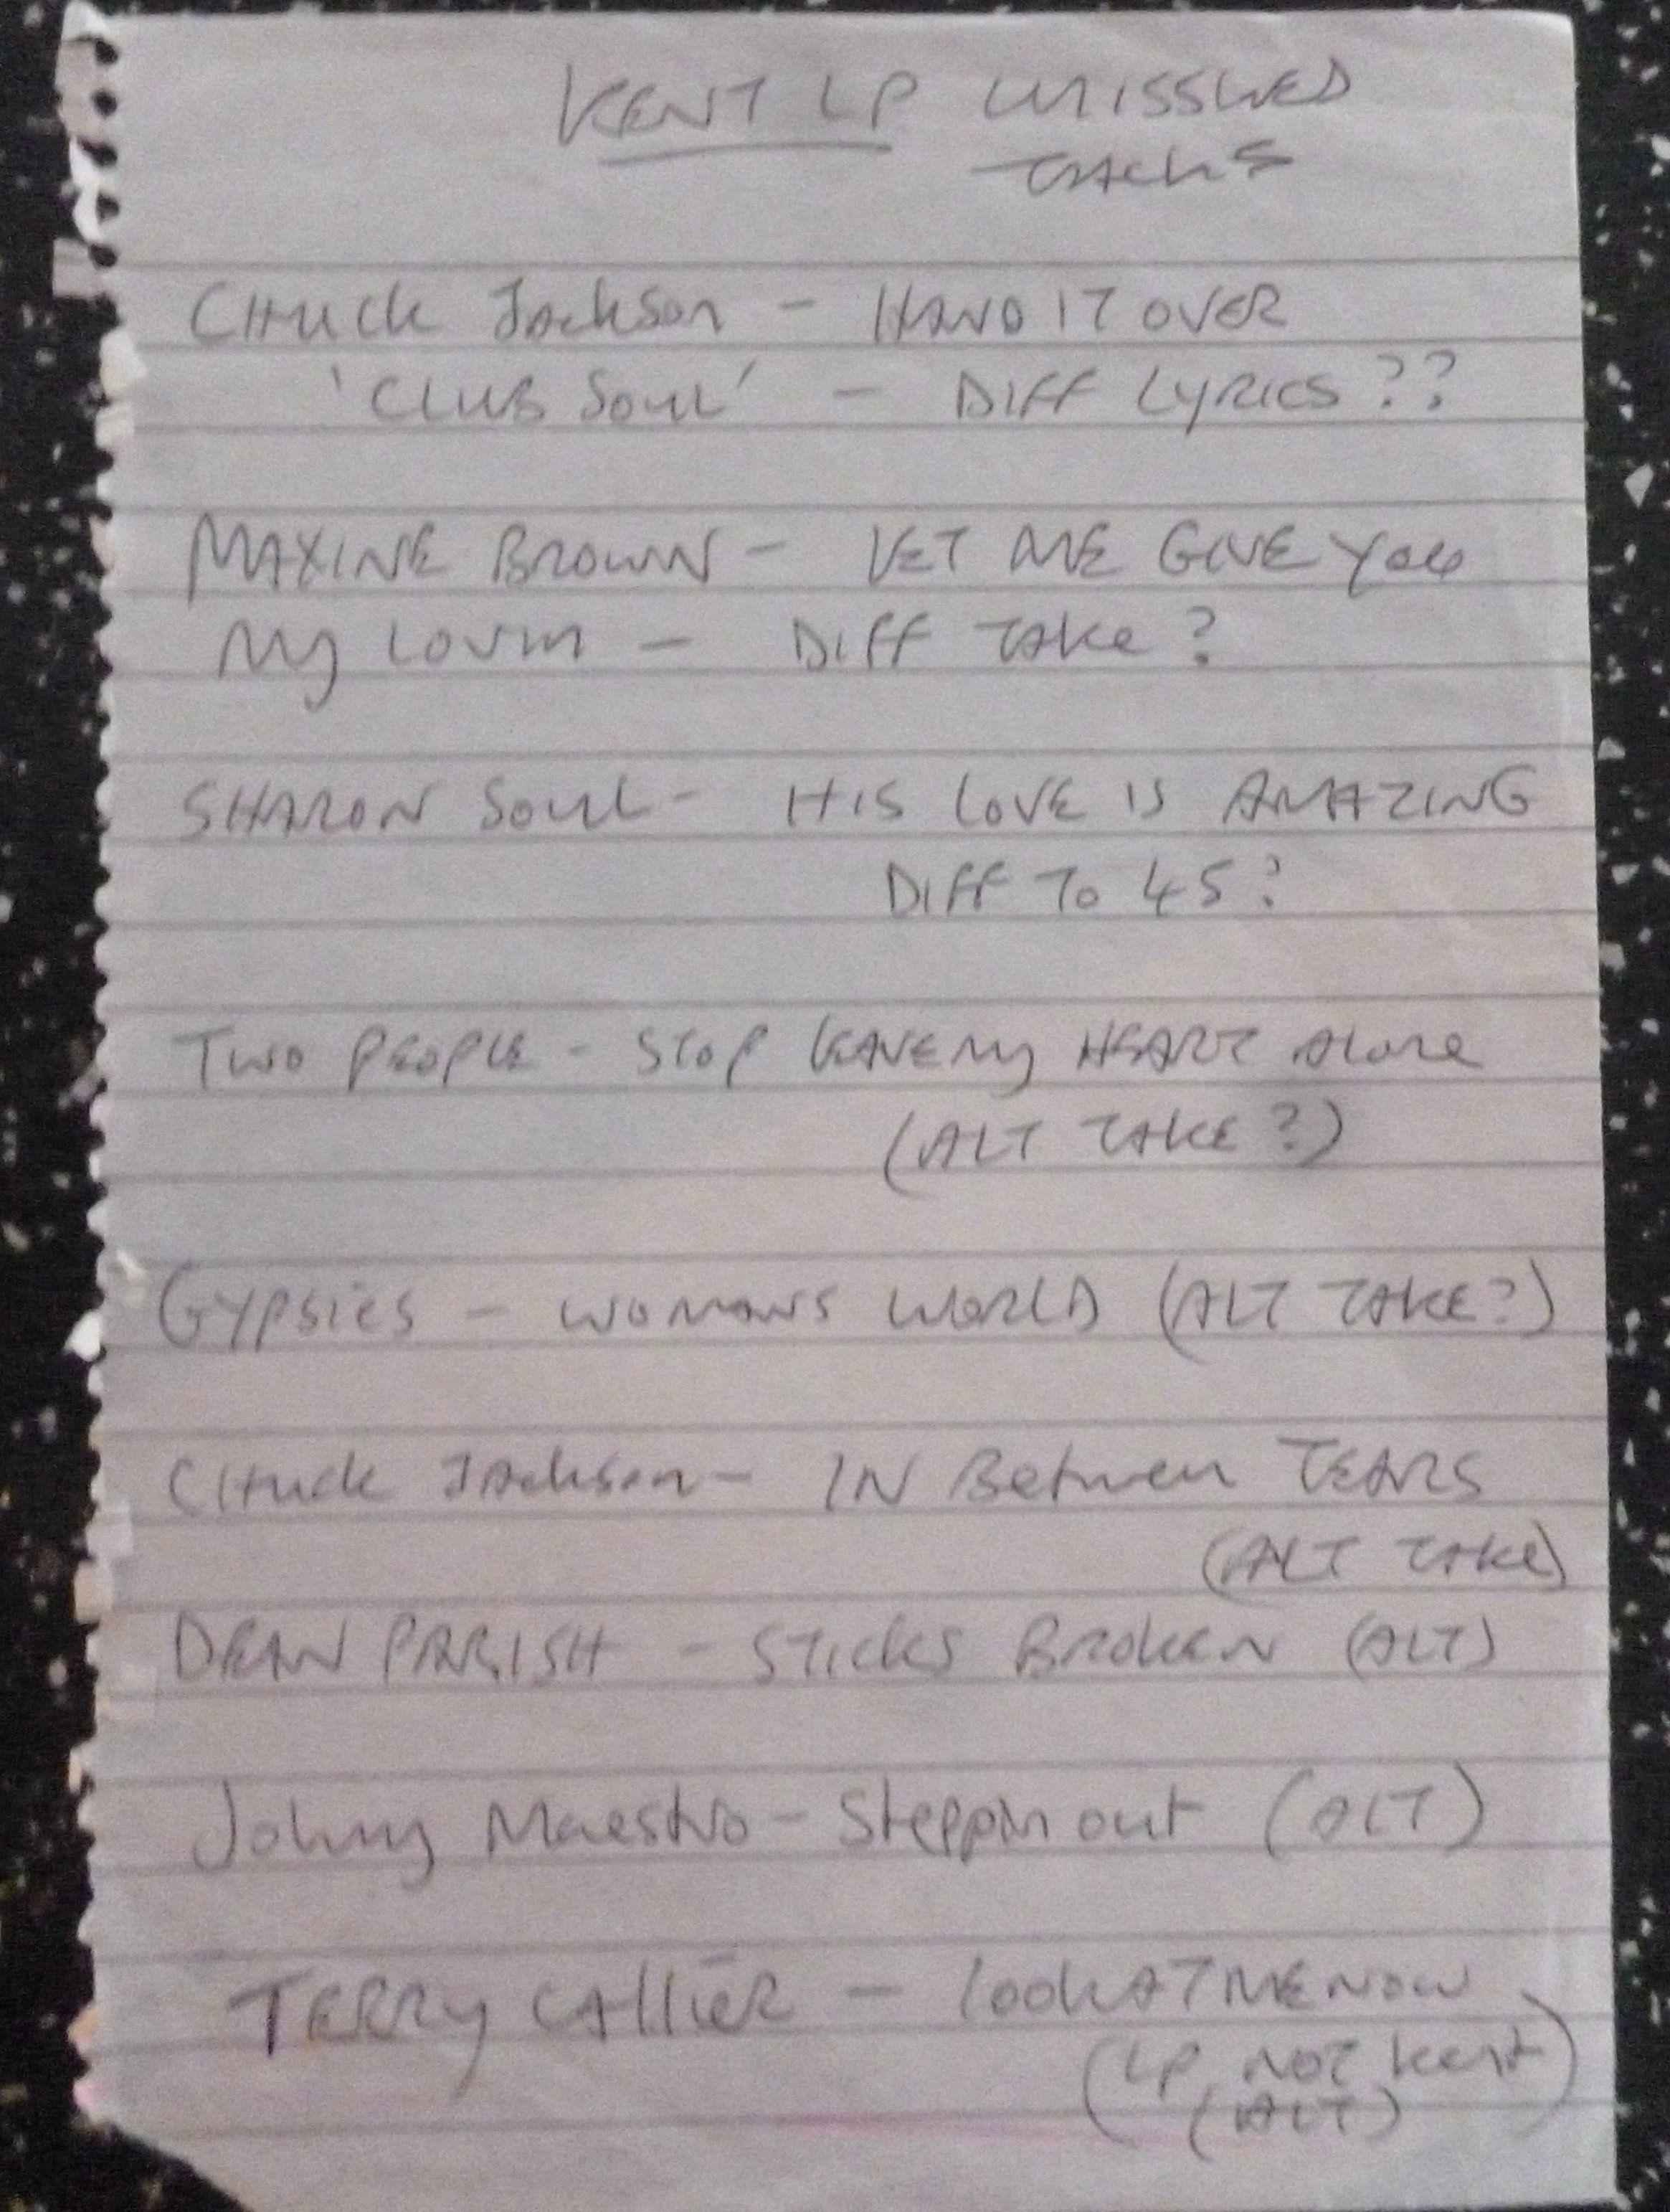 KENT LP MISSUED
TRACKS
CHUCK JACKSON - HAND IT OVER
'CLUB SOUL' - DIFF LYRICS ??
MAXINE BROWN - LET ME GIVE YOU
MY LOVIN - DIFF TAKE ?
SHARON SOUL - HIS LOVE IS AMAZING
DIFF TO 45 ?
TWO PEOPLE - STOP LEAVE MY HEART ALONE
(ALT TAKE ?)
GYPSIES - WOMANS WORLD (ALT TAKE?)
CHUCK JACKSON - IN BETWEEN TEARS
(ALT TAKE)
DEAN PARISH - STICKS BROKEN (ALT)
Johny Maestro - Steppin out (ALT)
TERRY CALLIER - LOOK AT ME NOW
(LP, NOT Kent)
(ALT)